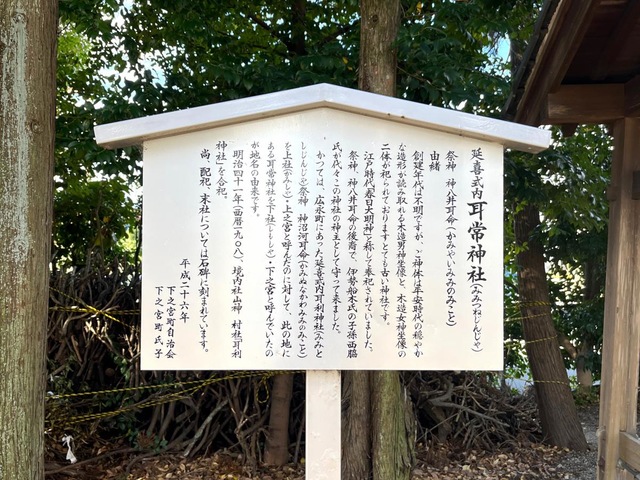 延喜式内 耳常神社(みみつねじんじゃ)
祭神 神八井耳命(かみやいみみのみこと)
由緒
創建年代は不明ですが、ご神体は平安時代の穏やか
な造形が読み取れる木造男神坐像と、木造女神坐像の
二体が祀られておりますとても古い神社です。
江戸時代春日大明神と称して奉祀されていました。
祭神、神八井耳命の後裔で、伊勢船木氏の子孫西脇
氏が代々この神社の神主として守って来ました。
かつては、広永町にあった延喜式内耳利神社(みみと
しじんじゃ)祭神 神沼河耳命(かみぬなかわみみのみこと)
を上社(かみしゃ)・上之宮と呼んだのに対して、此の地に
ある耳常神社を下社(しもしゃ)・下之宮と呼んでいたの
が地名の由来です。
明治四十一年(西暦一九〇八)、境内社山神 村社耳利
神社」を合祀。
尚、配祀、末社については石碑に刻まれています。
平成二十六年
下之宮町自治会
下之宮町氏子